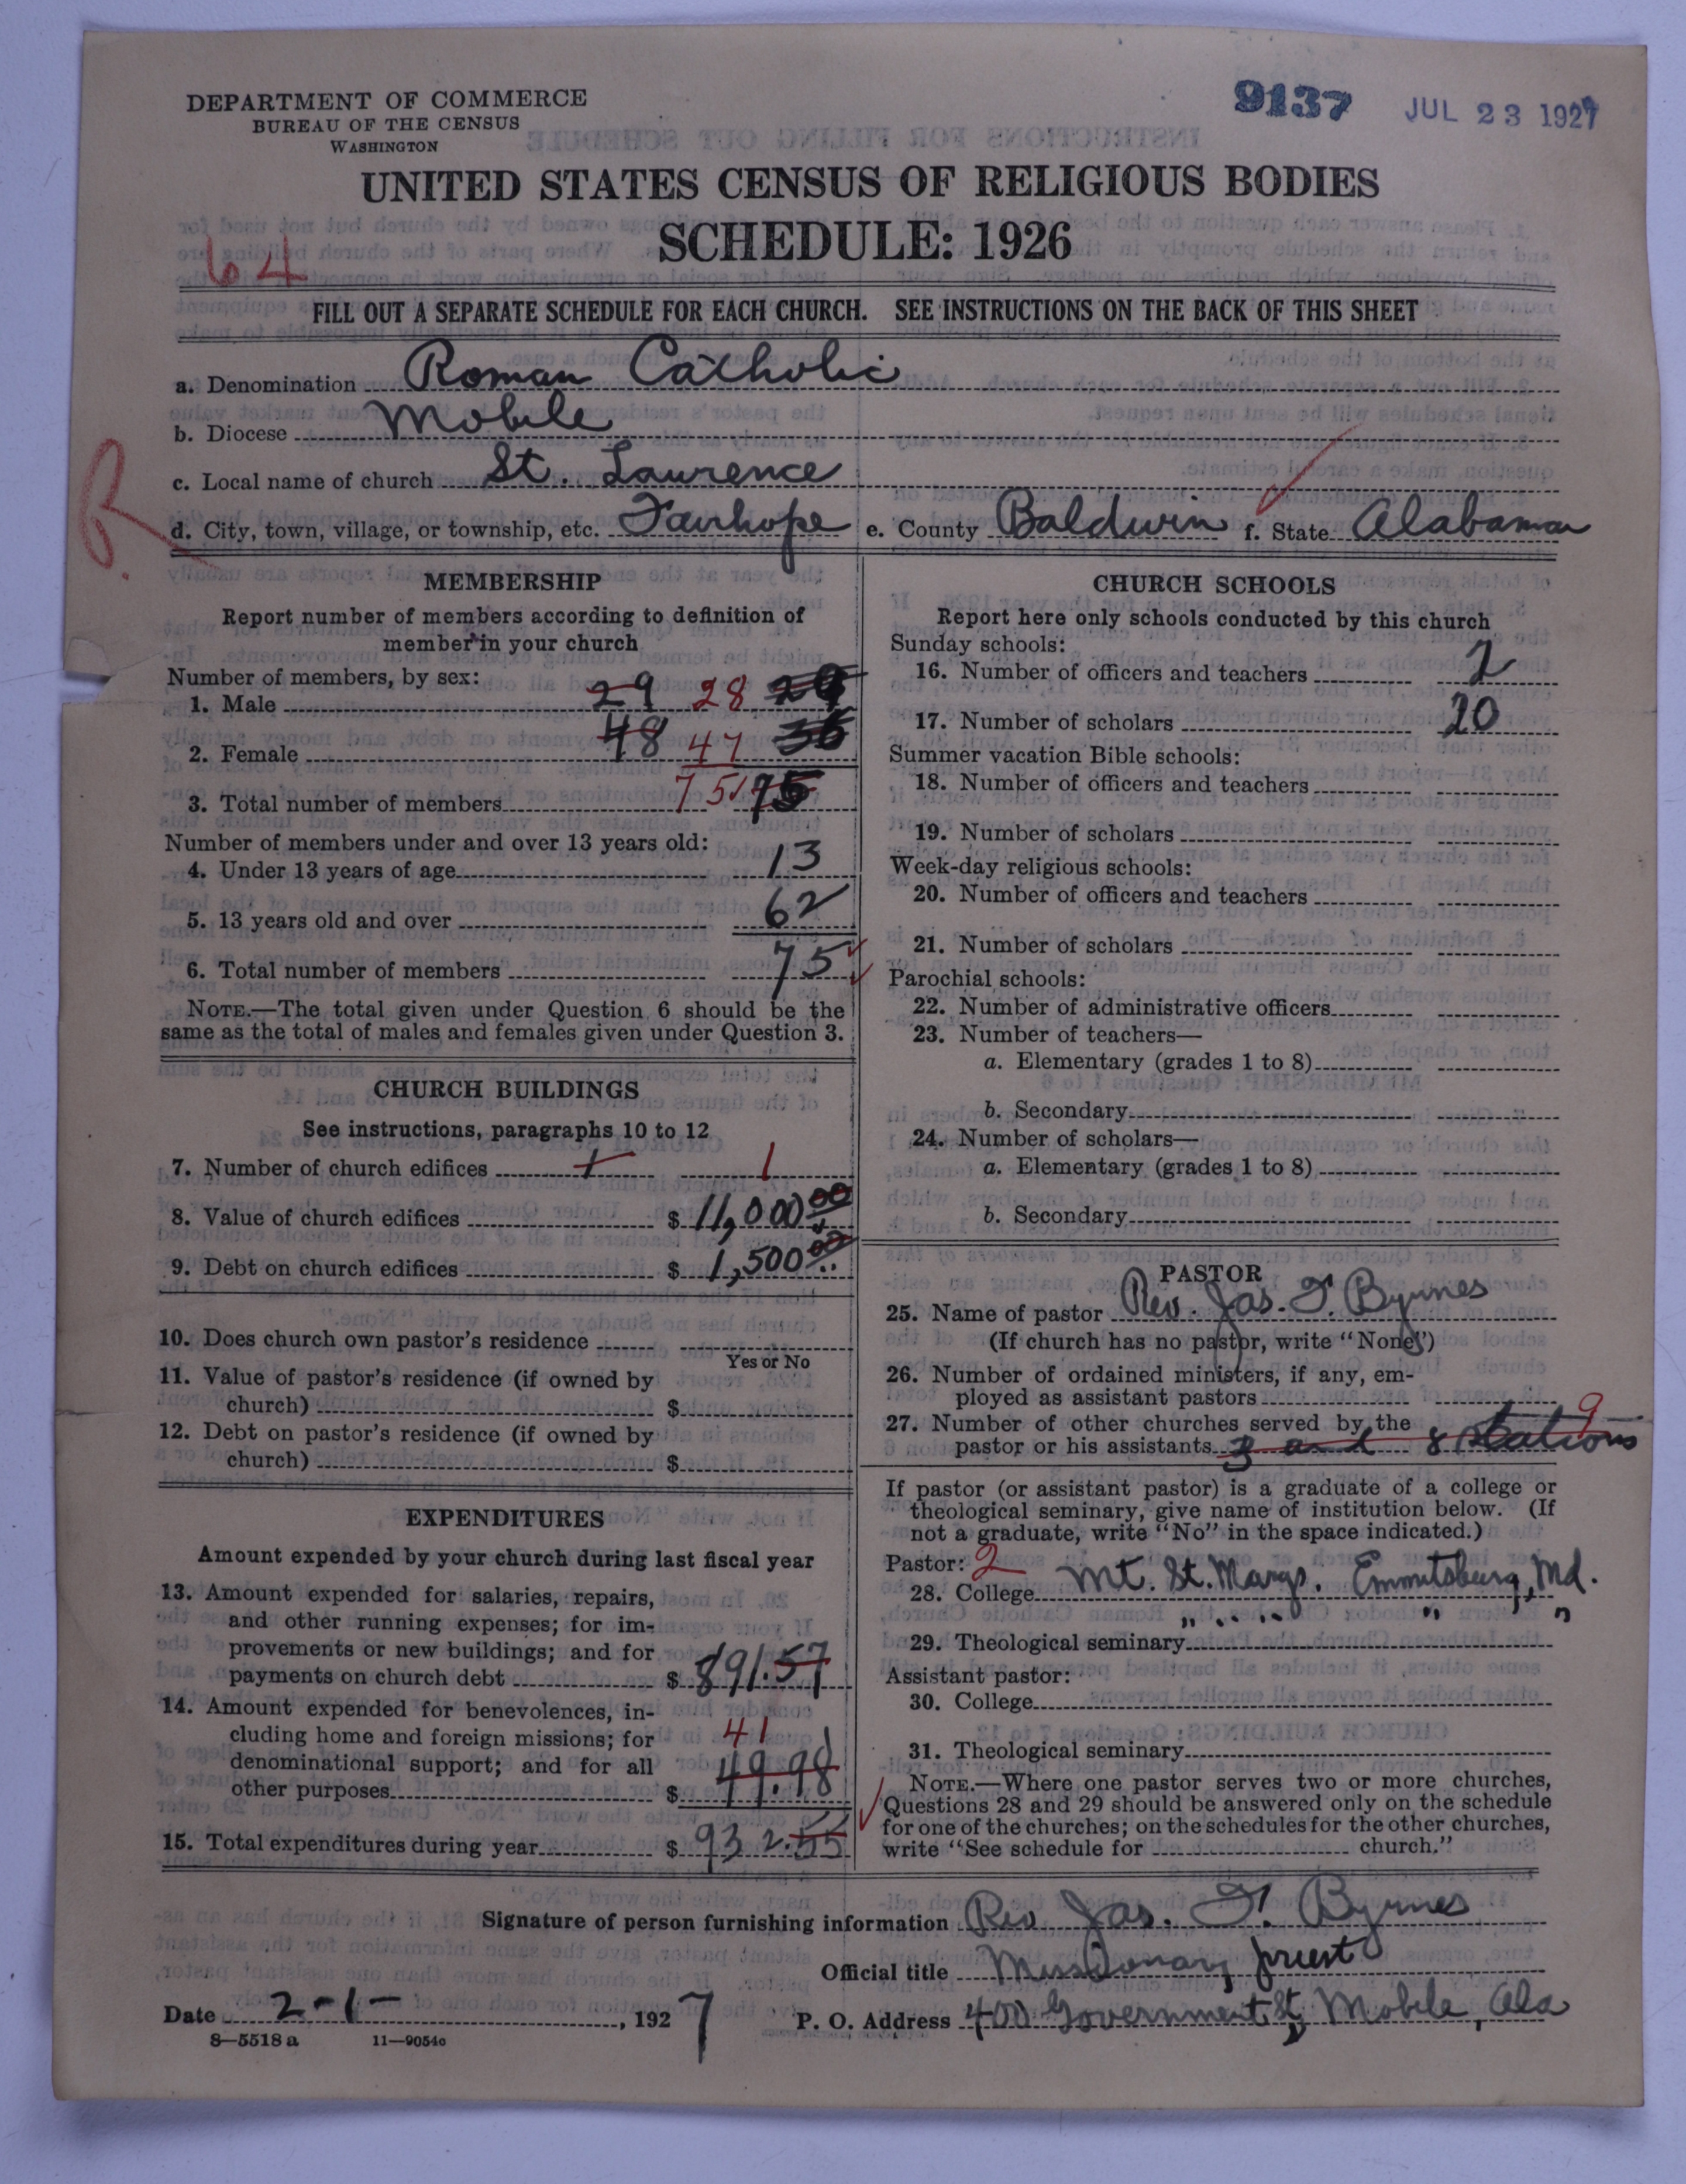 DEPARTMENT OF COMMERCE
BUREAU OF THE CENSUS
WASHINGTON
9137 JUL 23 1927
UNITED STATES CENSUS OF RELIGIOUS BODIES
SCHEDULE: 1926
64
FILL OUT A SEPARATE SCHEDULE FOR EACH CHURCH. SEE INSTRUCTIONS ON THE BACK OF THIS SHEET
a. Denomination Roman Catholic
b. Diocese Mobile
c. Local name of church St. Lawrence
R
d. City, town, village, or township, etc. Fairhope e. County Baldwin f. State Alabama
MEMBERSHIP
Report number of members according to definition of
member in your church
Number of members, by sex:
1. Male 29 28
2. Female 48 47 36
3. Total number of members 75 75
Number of members under and over 13 years old:
4. Under 13 years of age 13
5. 13 years old and over 62
6. Total number of members 75
NOTE.—The total given under Question 6 should be the
same as the total of males and females given under Question 3.
CHURCH BUILDINGS
See instructions, paragraphs 10 to 12
7. Number of church edifices 1 1
8. Value of church edifices $ 11,000 00
9. Debt on church edifices $ 1,500 00
10. Does church own pastor's residence
Yes or No
11. Value of pastor's residence (if owned by
church) $
12. Debt on pastor's residence (if owned by
church) $
EXPENDITURES
Amount expended by your church during last fiscal year
13. Amount expended for salaries, repairs,
and other running expenses; for im-
provements or new buildings; and for
payments on church debt $ 891.57
14. Amount expended for benevolences, in-
cluding home and foreign missions; for 41
denominational support; and for all
other purposes $ 49.98
15. Total expenditures during year $ 932.55
CHURCH SCHOOLS
Report here only schools conducted by this church
Sunday schools:
16. Number of officers and teachers 2
17. Number of scholars 20
Summer vacation Bible schools:
18. Number of officers and teachers
19. Number of scholars
Week-day religious schools:
20. Number of officers and teachers
21. Number of scholars
Parochial schools:
22. Number of administrative officers
23. Number of teachers—
a. Elementary (grades 1 to 8)
b. Secondary
24. Number of scholars—
a. Elementary (grades 1 to 8)
b. Secondary
PASTOR
25. Name of pastor Rev. Jas. F. Byrnes
(If church has no pastor, write "None")
26. Number of ordained ministers, if any, em-
ployed as assistant pastors
27. Number of other churches served by the 9
pastor or his assistants 3 and 8 stations
If pastor (or assistant pastor) is a graduate of a college or
theological seminary, give name of institution below. (If
not a graduate, write "No" in the space indicated.)
Pastor: 2
28. College Mt. St. Marys. Emmitsburg, Md.
29. Theological seminary " " " " "
Assistant pastor:
30. College
31. Theological seminary
NOTE.—Where one pastor serves two or more churches,
Questions 28 and 29 should be answered only on the schedule
for one of the churches; on the schedules for the other churches,
write "See schedule for church."
Signature of person furnishing information Rev. Jas. F. Byrnes
Official title Missionary priest
Date 2-1-, 1927 P. O. Address 400 Government St, Mobile, Ala
8—5518 a 11—9054c